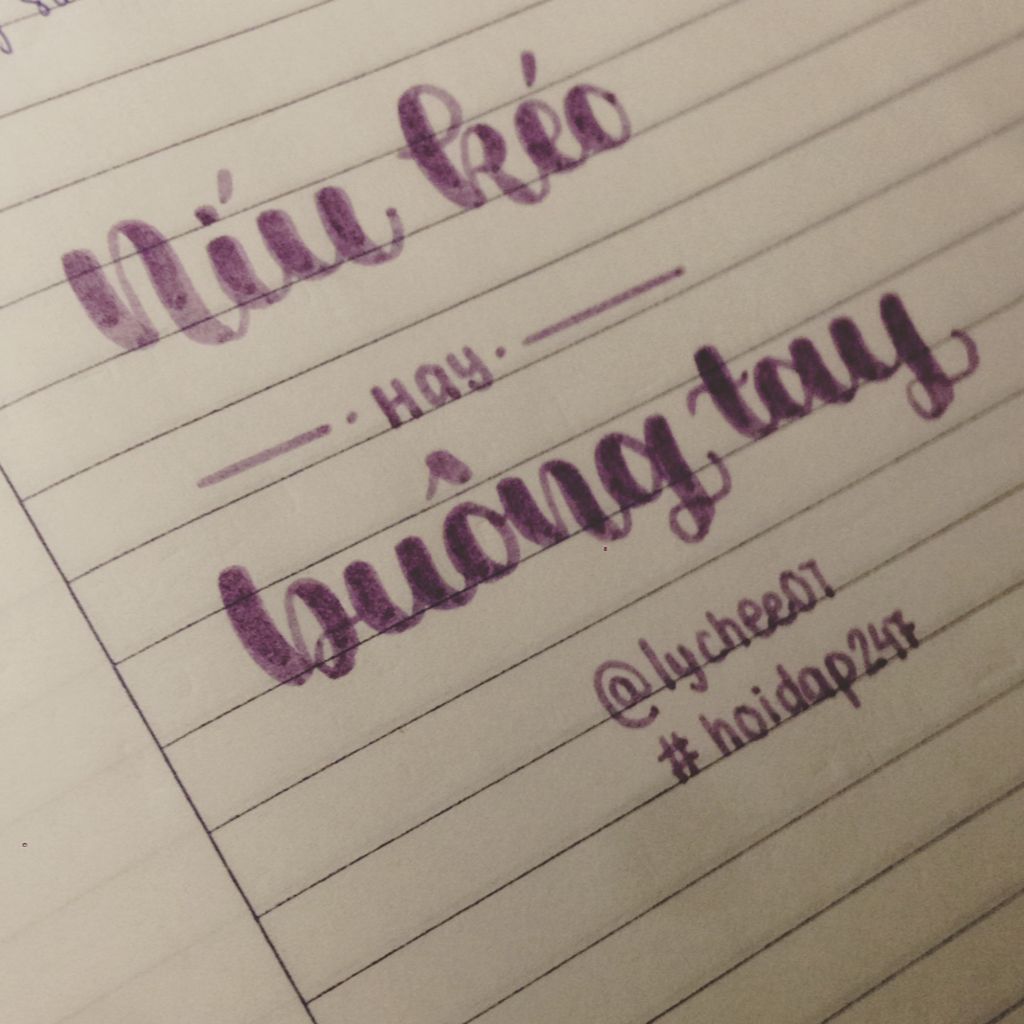 Níu kéo
Hay
buông tay
@lychee07
#hoidap247